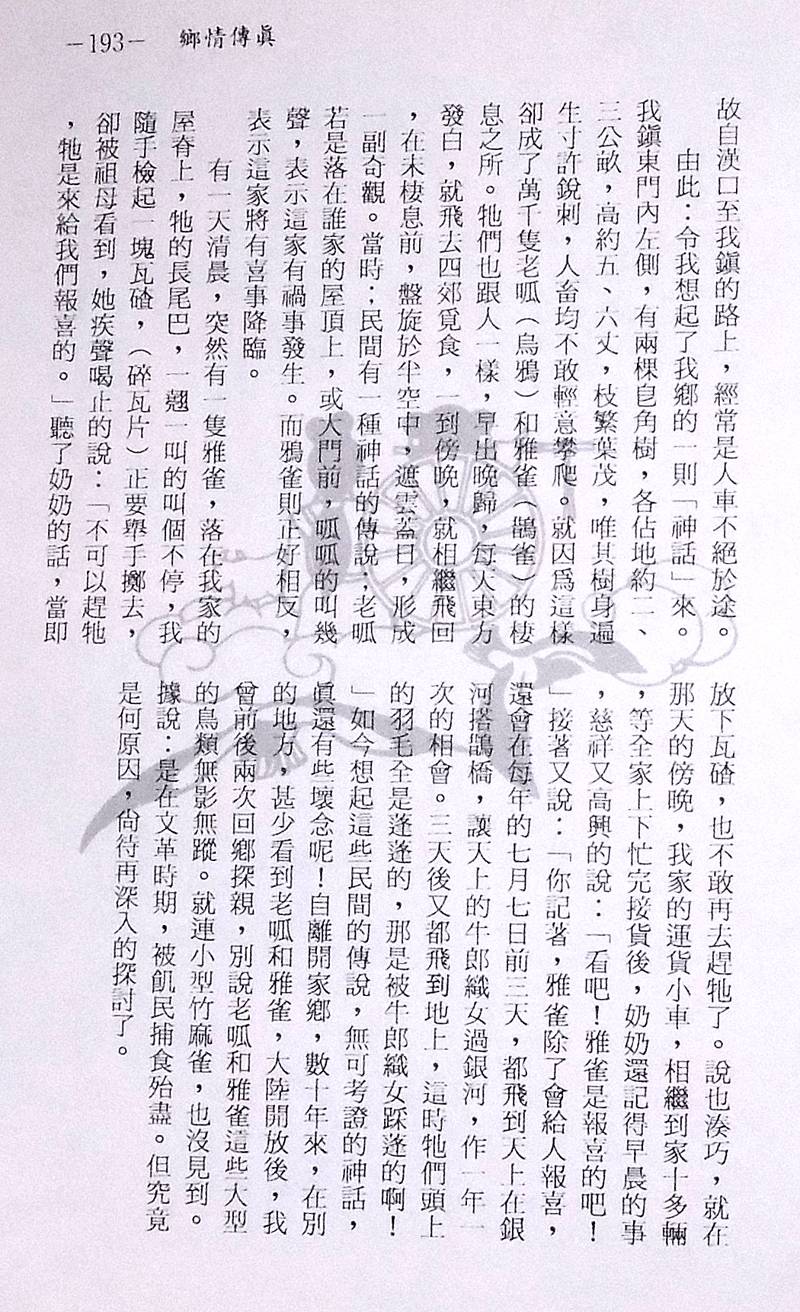 －193－　鄉情傳眞
故自漢口至我鎮的路上，經常是人車不絕於途。
由此：令我想起了我鄉的一則「神話」來。
我鎮東門內左側，有兩棵皀角樹，各佔地約二、
三公畝，高約五、六丈，枝繁葉茂，唯其樹身遍
生寸許銳刺，人畜均不敢輕意攀爬。就因爲這樣
卻成了萬千隻老呱（烏鴉）和雅雀（鵲雀）的棲
息之所。牠們也跟人一樣，早出晚歸，每天東方
發白，就飛去四郊覓食，一到傍晚，就相繼飛回
，在未棲息前，盤旋於半空中，遮雲蓋日，形成
一副奇觀。當時；民間有一種神話的傳說；老呱
若是落在誰家的屋頂上，或大門前，呱呱的叫幾
聲，表示這家有禍事發生。而鴉雀則正好相反，
表示這家將有喜事降臨。
有一天清晨，突然有一隻雅雀，落在我家的
屋脊上，牠的長尾巴，一翹一叫的叫個不停，我
隨手檢起一塊瓦碴，（碎瓦片）正要舉手擲去，
卻被祖母看到，她疾聲喝止的說：「不可以趕牠
，牠是來給我們報喜的。」聽了奶奶的話，當即
放下瓦碴，也不敢再去趕牠了。說也湊巧，就在
那天的傍晚，我家的運貨小車，相繼到家十多輛
，等全家上下忙完接貨後，奶奶還記得早晨的事
，慈祥又高興的說：「看吧！雅雀是報喜的吧！
」接著又說：「你記著，雅雀除了會給人報喜，
還會在每年的七月七日前三天，都飛到天上在銀
河搭鵲橋，讓天上的牛郎織女過銀河，作一年一
次的相會。三天後又都飛到地上，這時牠們頭上
的羽毛全是蓬蓬的，那是被牛郎織女踩蓬的啊！
」如今想起這些民間的傳說，無可考證的神話，
眞還有些壞念呢！自離開家鄉，數十年來，在別
的地方，甚少看到老呱和雅雀，大陸開放後，我
曾前後兩次回鄉探親，別說老呱和雅雀這些大型
的鳥類無影無蹤。就連小型竹麻雀，也沒見到。
據說：是在文革時期，被飢民捕食殆盡。但究竟
是何原因，尙待再深入的探討了。